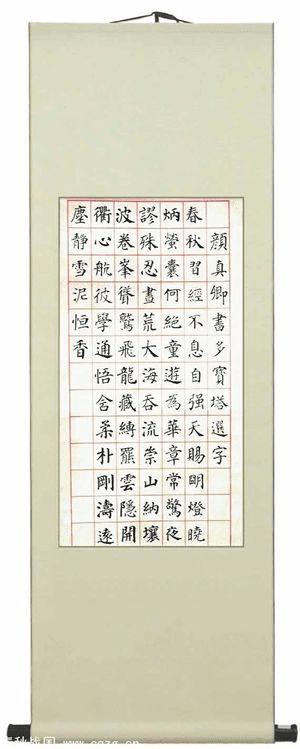 顏真卿書多寶塔選字
春秋習經不息自强天賜明燈曉
炳螢囊何絕童遊為華章常驚夜
謬殊忍晝荒大海吞流崇山納壤
波卷峯聳鷲飛龍藏縛羆雲隱開
衢心航彼學通悟舍柔朴剛濤遠
塵靜雪泥恒香
秋战国 www.cqzg.cn